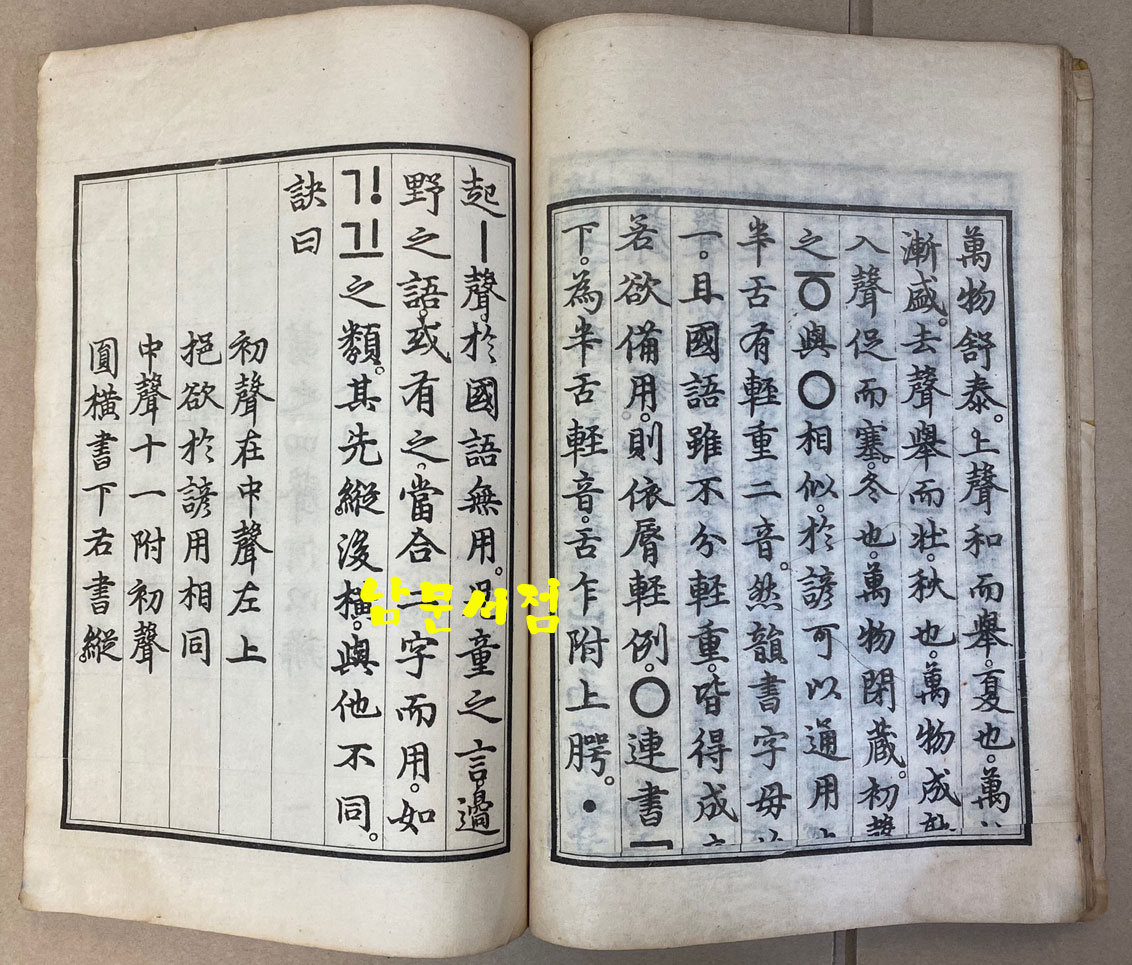 萬物舒泰。上聲和而舉。夏也。萬
漸盛。去聲舉而壯。秋也。萬物成
入聲促而塞。冬也。萬物閉藏。初聲
之ㆆ與ㅇ相似。於諺可以通用
半舌有輕重二音。然韻書字母
一。且國語雖不分輕重。皆得成
若欲備用。則依脣輕例。ㅇ連書
下。為半舌輕音。舌乍附上腭。ㆍ
起ㅣ聲。於國語無用。童之言。邊
野之語。或有之。當合二字而用。如
ᄀᆝᄀᆜ之類。其先縱。後橫。與他不同。
訣曰
初聲在中聲左上
挹欲於諺用相同
中聲十一附初聲
圓橫書下右書縱。
남문서점